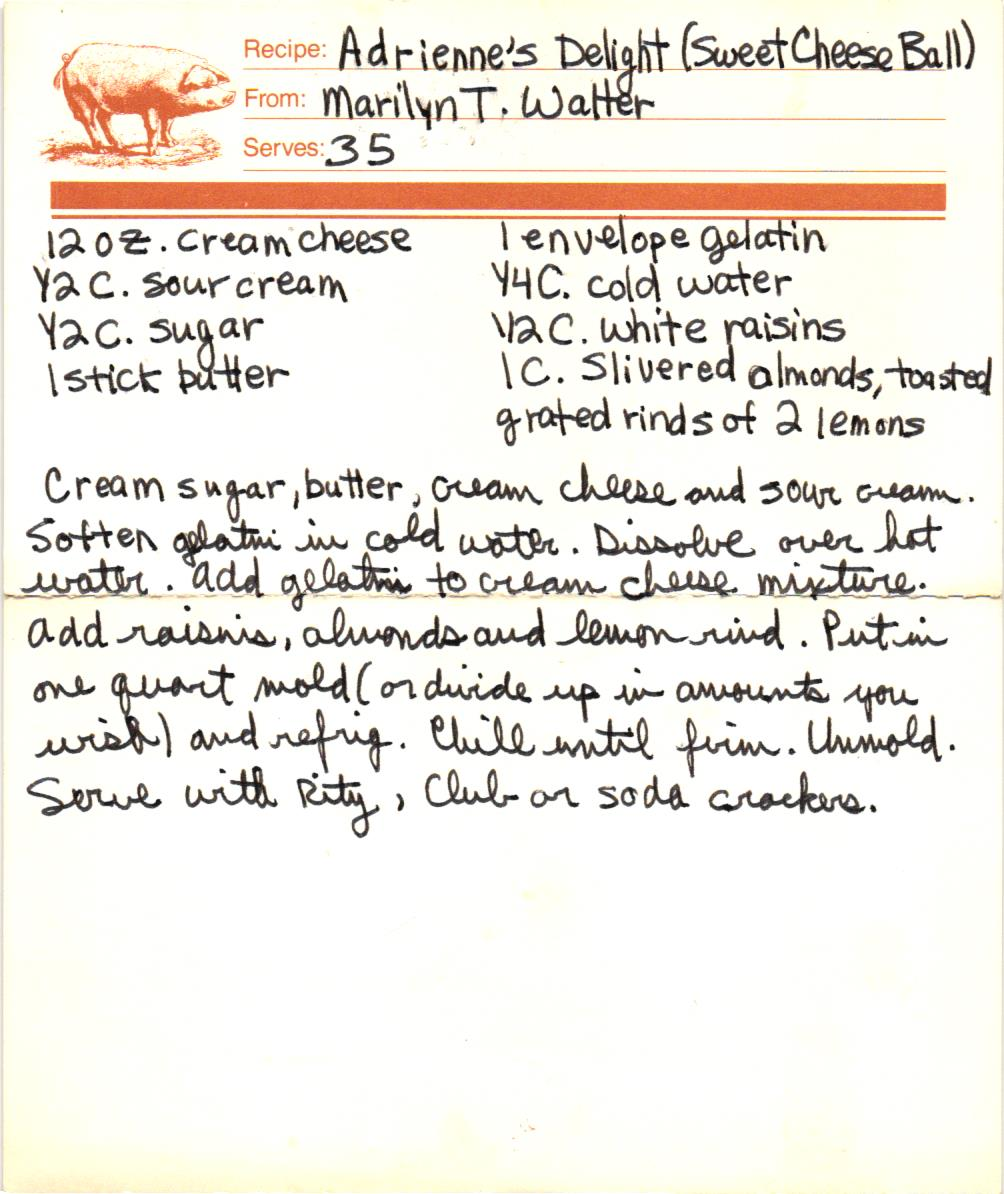 Recipe: Adrienne's Delight (Sweet Cheese Ball)
From: Marilyn T. Walter
Serves: 35
12 oz. cream cheese
1/2 C. sour cream
1/2 C. sugar
1 stick butter
1 envelope gelatin
1/4 C. cold water
1/2 C. white raisins
1 C. Slivered almonds, toasted
grated rinds of 2 lemons
Cream sugar, butter, cream cheese and sour cream.
Soften gelatin in cold water. Dissolve over hot
water. Add gelatin to cream cheese mixture.
Add raisins, almonds and lemon rind. Put in
one quart mold (or divide up in amounts you
wish) and refrig. Chill until firm. Unmold.
Serve with Rity, Club or soda crackers.